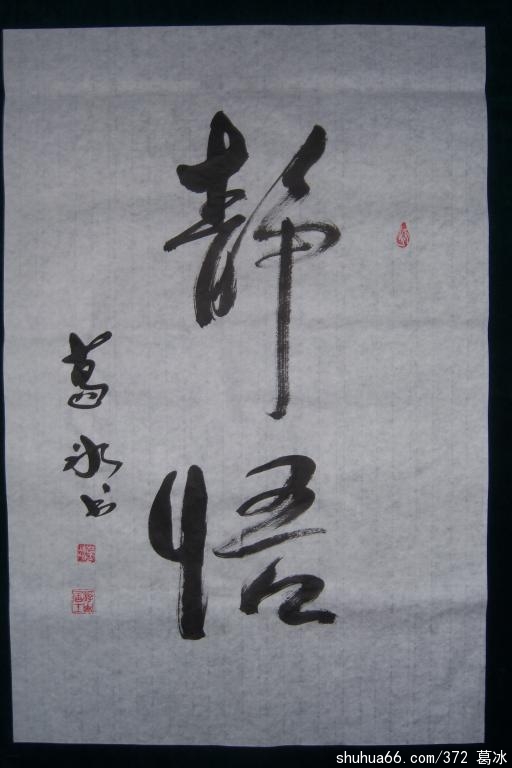 静悟
葛冰书
shuhua66.com/372 葛冰